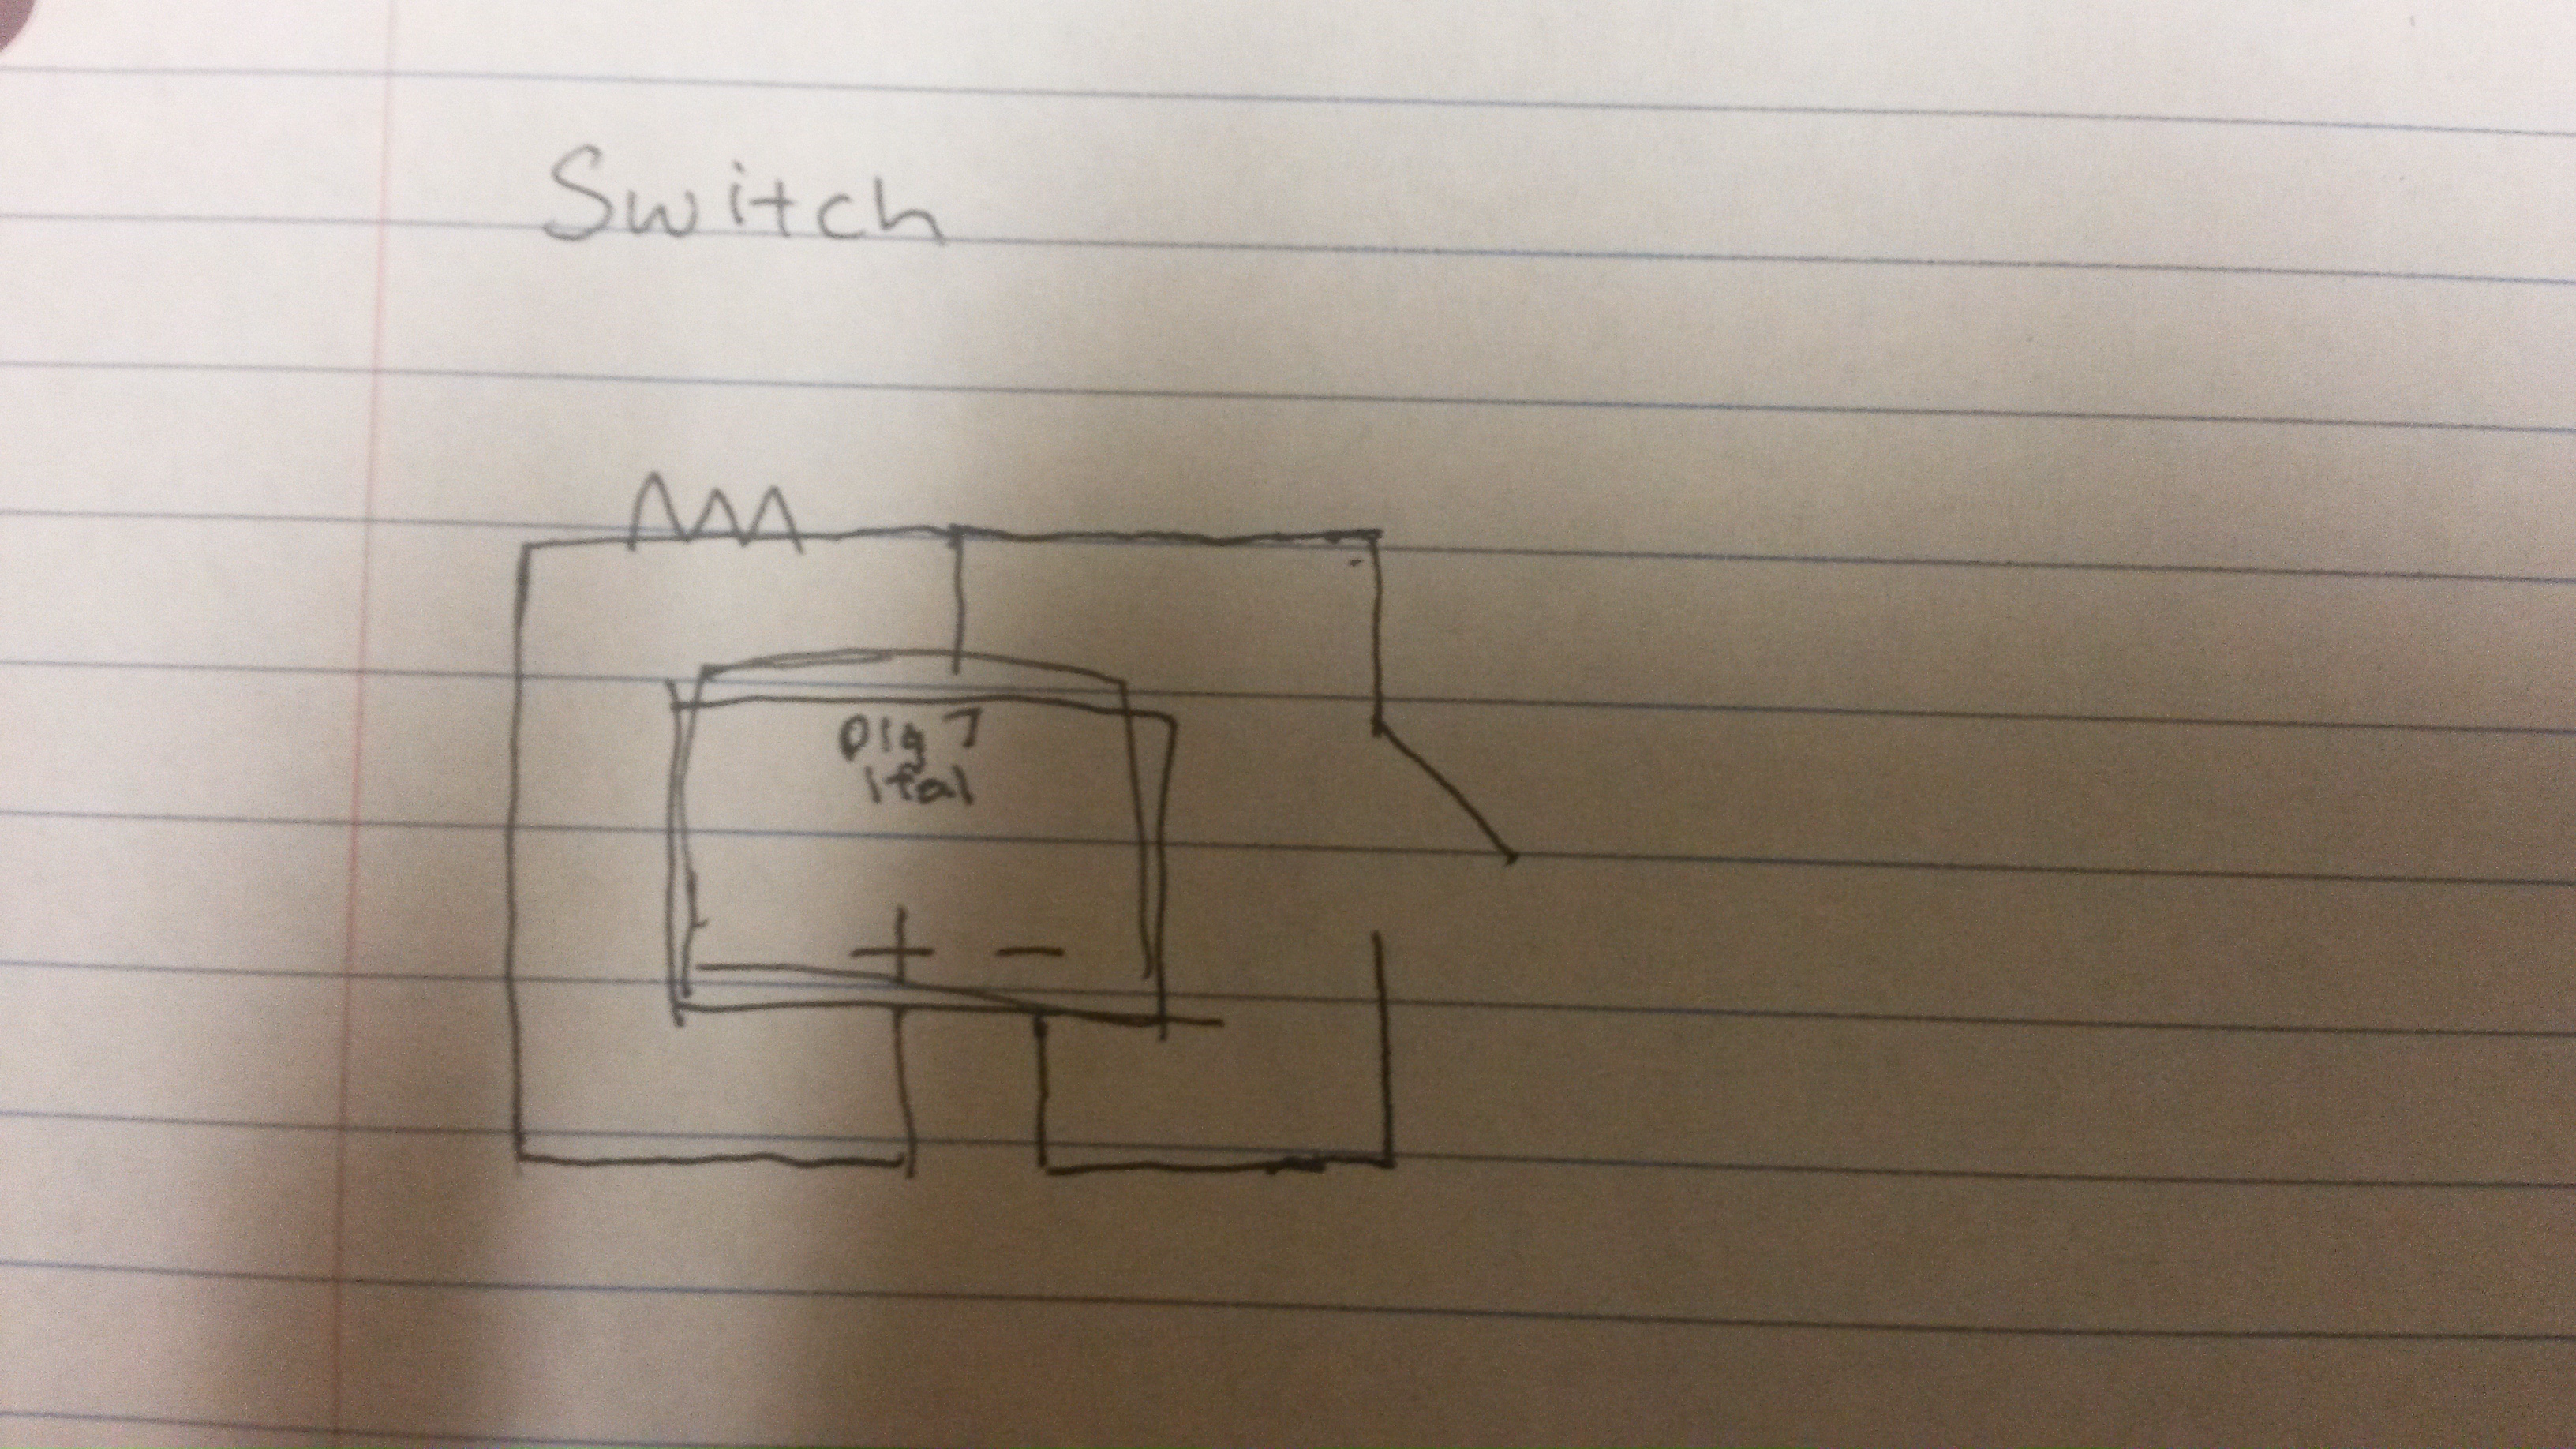 Switch
Dig 7
ital
+ -